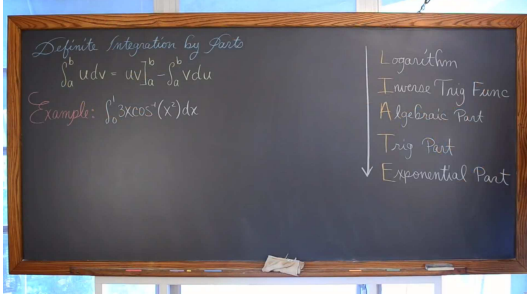 Definite Integration by Parts
∫ₐᵇ u dv = uv]ₐᵇ - ∫ₐᵇ v du
Example: ∫₀¹ 3x cos⁻¹(x²) dx
Logarithm
Inverse Trig Func
Algebraic Part
Trig Part
Exponential Part